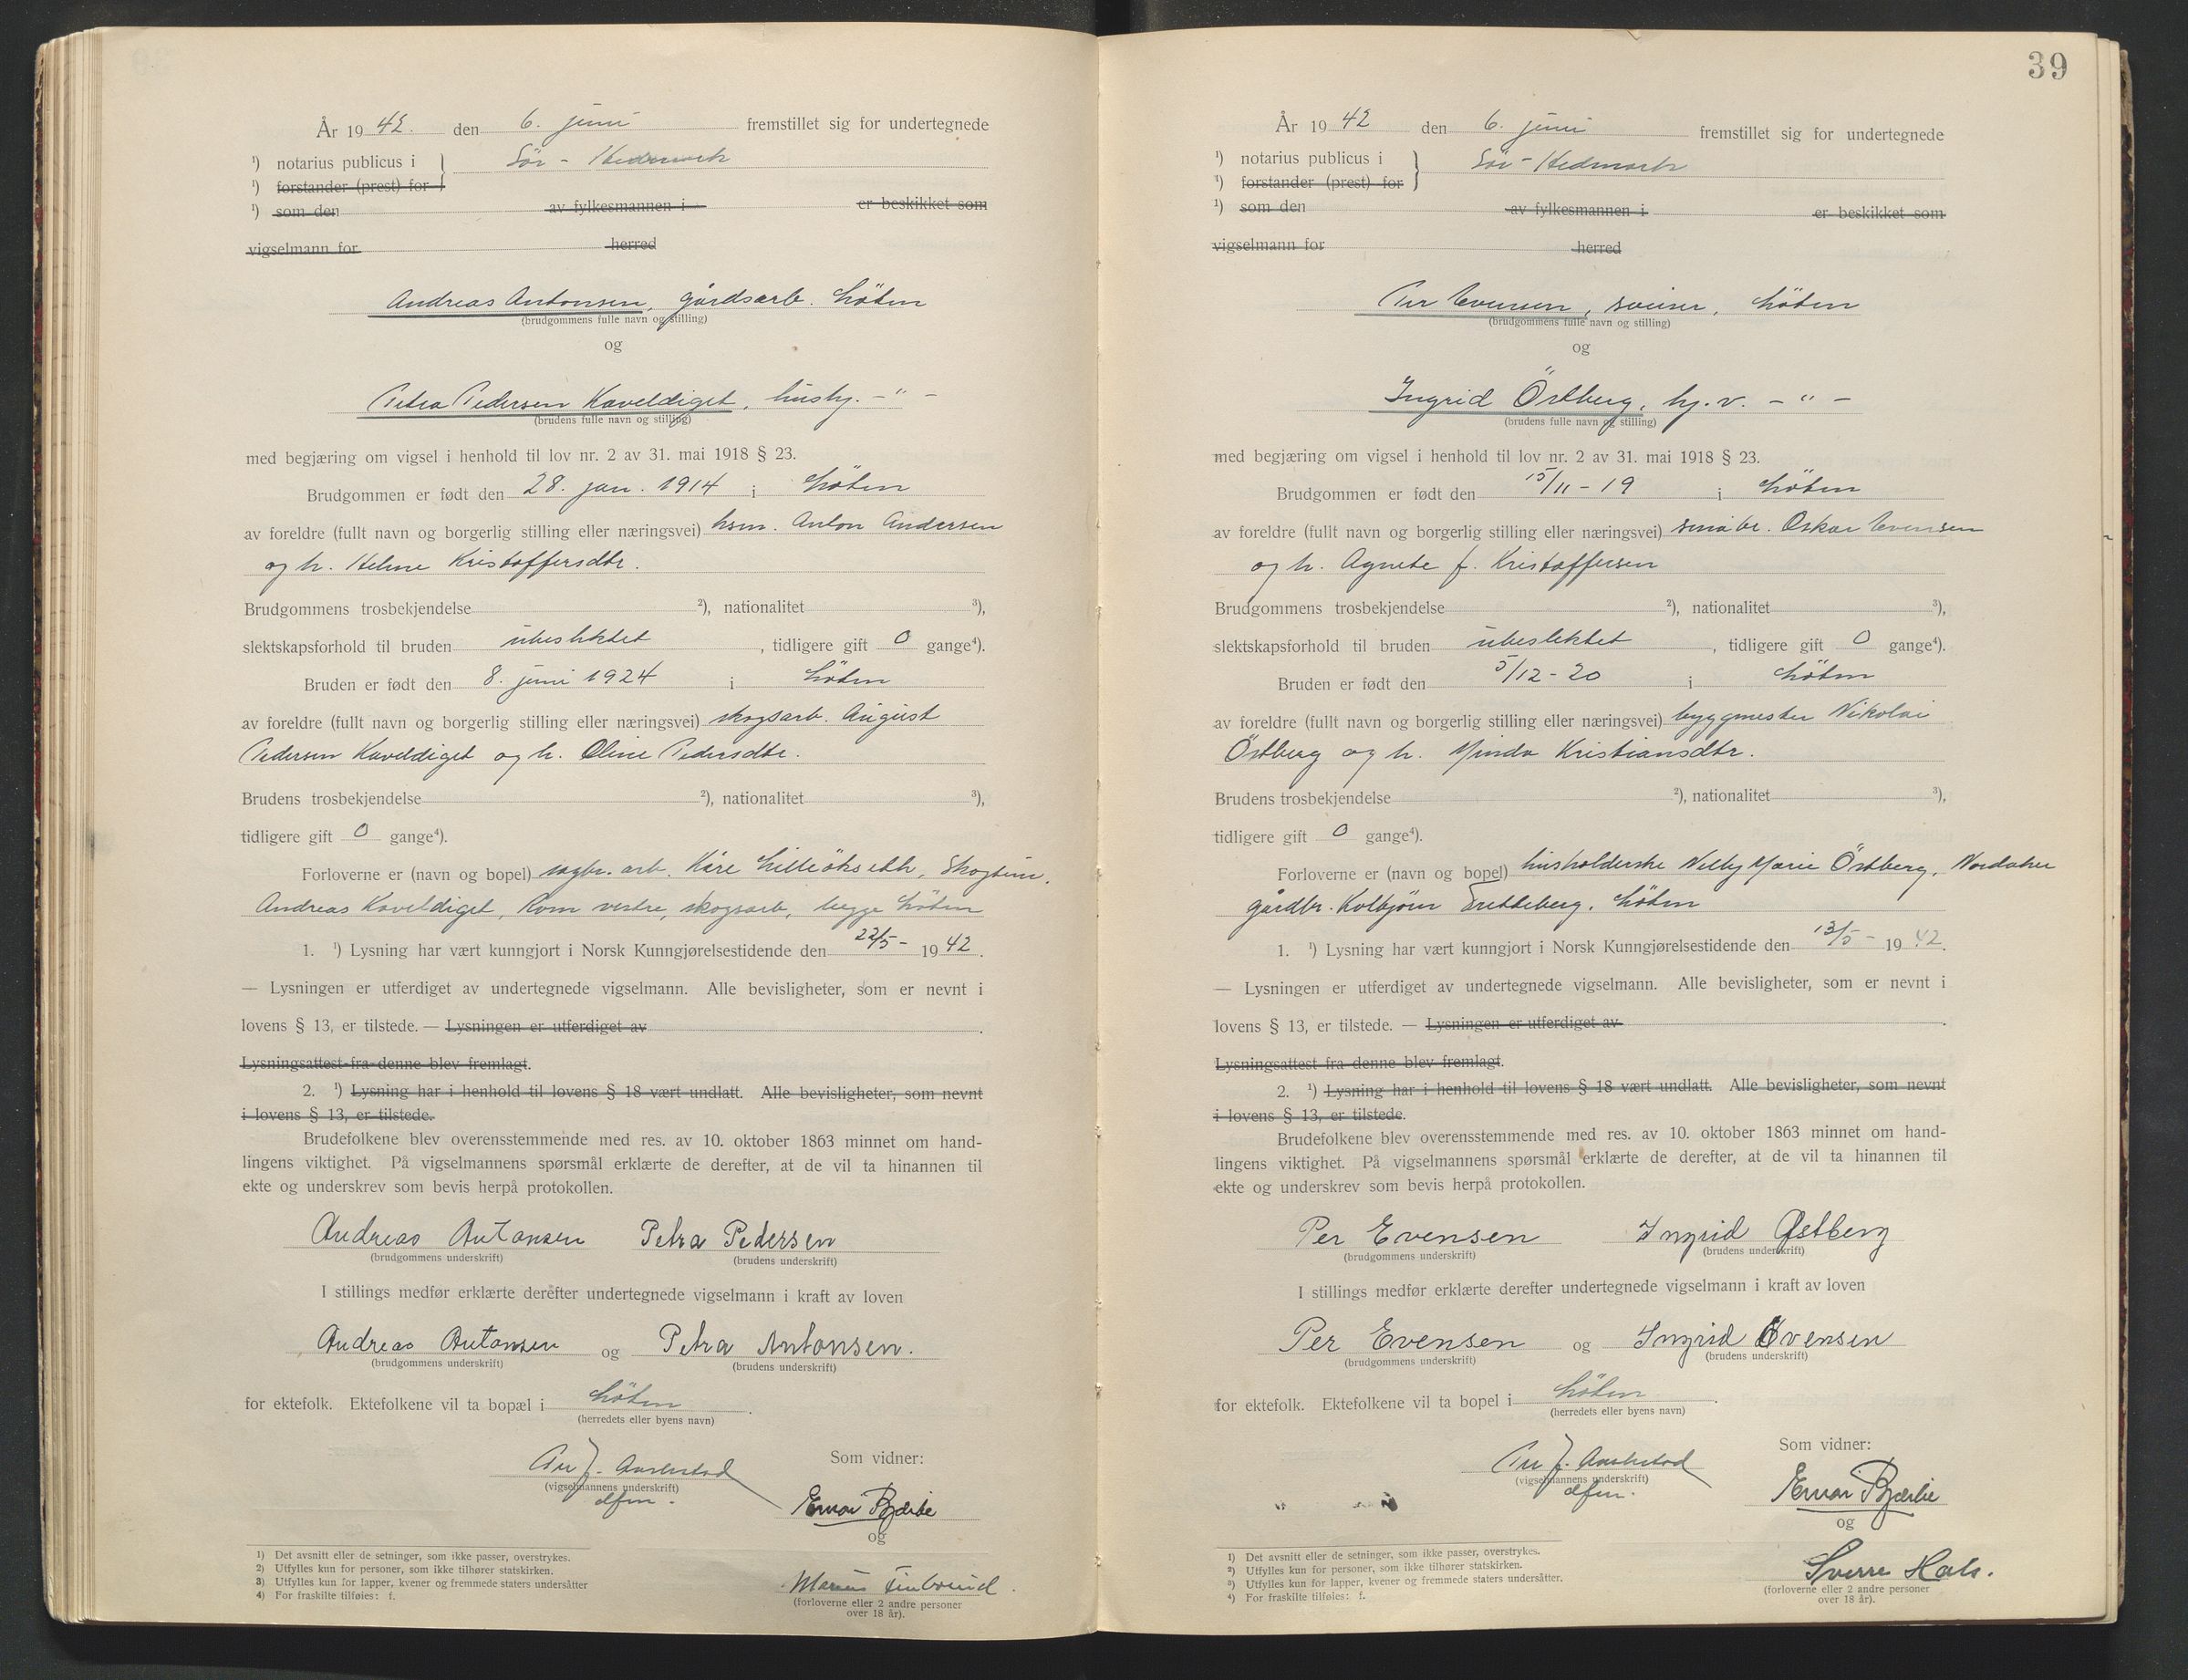 År 1942. den 6. juni fremstillet sig for undertegnede
¹) notarius publicus i } Sör - Hedmark
¹) forstander (prest) for
¹) som den av fylkesmannen i er beskikket som
vigselmann for herred
Andreas Antonsen, gårdsarb. Löten
(brudgommens fulle navn og stilling)
og
Petra Pedersen Kaveldiget, hushj. - " -
(brudens fulle navn og stilling)
med begjæring om vigsel i henhold til lov nr. 2 av 31. mai 1918 § 23.
Brudgommen er født den 28. jan. 1914 i Löten
av foreldre (fullt navn og borgerlig stilling eller næringsvei) hsm. Anton Andersen
og h. Helene Kristoffersdtr.
Brudgommens trosbekjendelse ²), nationalitet ³),
slektskapsforhold til bruden ubeslektet, tidligere gift 0 gange⁴).
Bruden er født den 8. juni 1924 i Löten
av foreldre (fullt navn og borgerlig stilling eller næringsvei) skogsarb. August
Pedersen Kaveldiget og h. Oline Pedersdtr.
Brudens trosbekjendelse ²), nationalitet ³),
tidligere gift 0 gange⁴).
Forloverne er (navn og bopel) sagbr. arb. Kåre Lilleökseth,
Andreas Kaveldiget, Rom vestre, skogsarb, begge Löten
1. ¹) Lysning har vært kunngjort i Norsk Kunngjørelsestidende den 22/5 - 1942.
— Lysningen er utferdiget av undertegnede vigselmann. Alle bevisligheter, som er nevnt i
lovens § 13, er tilstede. — Lysningen er utferdiget av .
Lysningsattest fra denne blev fremlagt.
2. ¹) Lysning har i henhold til lovens § 18 vært undlatt. Alle bevisligheter, som nevnt
i lovens § 13, er tilstede.
Brudefolkene blev overensstemmende med res. av 10. oktober 1863 minnet om hand-
lingens viktighet. På vigselmannens spørsmål erklærte de derefter, at de vil ta hinannen til
ekte og underskrev som bevis herpå protokollen.
Andreas Antonsen Petra Pedersen
(brudgommens underskrift) (brudens underskrift)
I stillings medfør erklærte derefter undertegnede vigselmann i kraft av loven
Andreas Antonsen og Petra Antonsen.
(brudgommens underskrift) (brudens underskrift)
for ektefolk. Ektefolkene vil ta bopæl i Löten.
(herredets eller byens navn)
Som vidner:
(vigselmannens underskrift)
dfm.
og
Marius
(forloverne eller 2 andre personer
over 18 år).
1) Det avsnitt eller de setninger, som ikke passer, overstrykes.
2) Utfylles kun for personer, som ikke tilhører statskirken.
3) Utfylles kun for lapper, kvener og fremmede staters undersåtter
4) For fraskilte tilføies: f.
39
År 1942 den 6. juni fremstillet sig for undertegnede
¹) notarius publicus i } Sör - Hedmark
¹) forstander (prest) for
¹) som den av fylkesmannen i er beskikket som
vigselmann for herred
Per Evensen, sveiser, Löten
(brudgommens fulle navn og stilling)
og
Ingrid Östberg, hj.v. - " -
(brudens fulle navn og stilling)
med begjæring om vigsel i henhold til lov nr. 2 av 31. mai 1918 § 23.
Brudgommen er født den 15/11 - 19 i Löten
av foreldre (fullt navn og borgerlig stilling eller næringsvei) småbr. Oskar Evensen
og h. Agnete f. Kristoffersen
Brudgommens trosbekjendelse ²), nationalitet ³),
slektskapsforhold til bruden ubeslektet, tidligere gift 0 gange⁴).
Bruden er født den 5/12 - 20 i Löten
av foreldre (fullt navn og borgerlig stilling eller næringsvei) byggmester Nikolai
Östberg og h. Minda Kristiansdtr.
Brudens trosbekjendelse ²), nationalitet ³),
tidligere gift 0 gange⁴).
Forloverne er (navn og bopel) husholderske Nelly Marie Östberg, Nordaker
gårdbr. Kolbjörn Tretteberg, Löten
1. ¹) Lysning har vært kunngjort i Norsk Kunngjørelsestidende den 13/5 - 1942.
— Lysningen er utferdiget av undertegnede vigselmann. Alle bevisligheter, som er nevnt i
lovens § 13, er tilstede. — Lysningen er utferdiget av .
Lysningsattest fra denne blev fremlagt.
2. ¹) Lysning har i henhold til lovens § 18 vært undlatt. Alle bevisligheter, som nevnt
i lovens § 13, er tilstede.
Brudefolkene blev overensstemmende med res. av 10. oktober 1863 minnet om hand-
lingens viktighet. På vigselmannens spørsmål erklærte de derefter, at de vil ta hinannen til
ekte og underskrev som bevis herpå protokollen.
Per Evensen Ingrid Østberg
(brudgommens underskrift) (brudens underskrift)
I stillings medfør erklærte derefter undertegnede vigselmann i kraft av loven
Per Evensen og Ingrid Evensen
(brudgommens underskrift) (brudens underskrift)
for ektefolk. Ektefolkene vil ta bopel i Löten.
(herredets eller byens navn)
Som vidner:
(vigselmannens underskrift)
dfm.
og
Sverre Hals.
(forloverne eller 2 andre personer
over 18 år).
¹) Det avsnitt eller de setninger, som ikke passer, overstrykes.
²) Utfylles kun for personer, som ikke tilhører statskirken.
³) Utfylles kun for lapper, kvener og fremmede staters undersåtter.
⁴) For fraskilte tilføies: f.